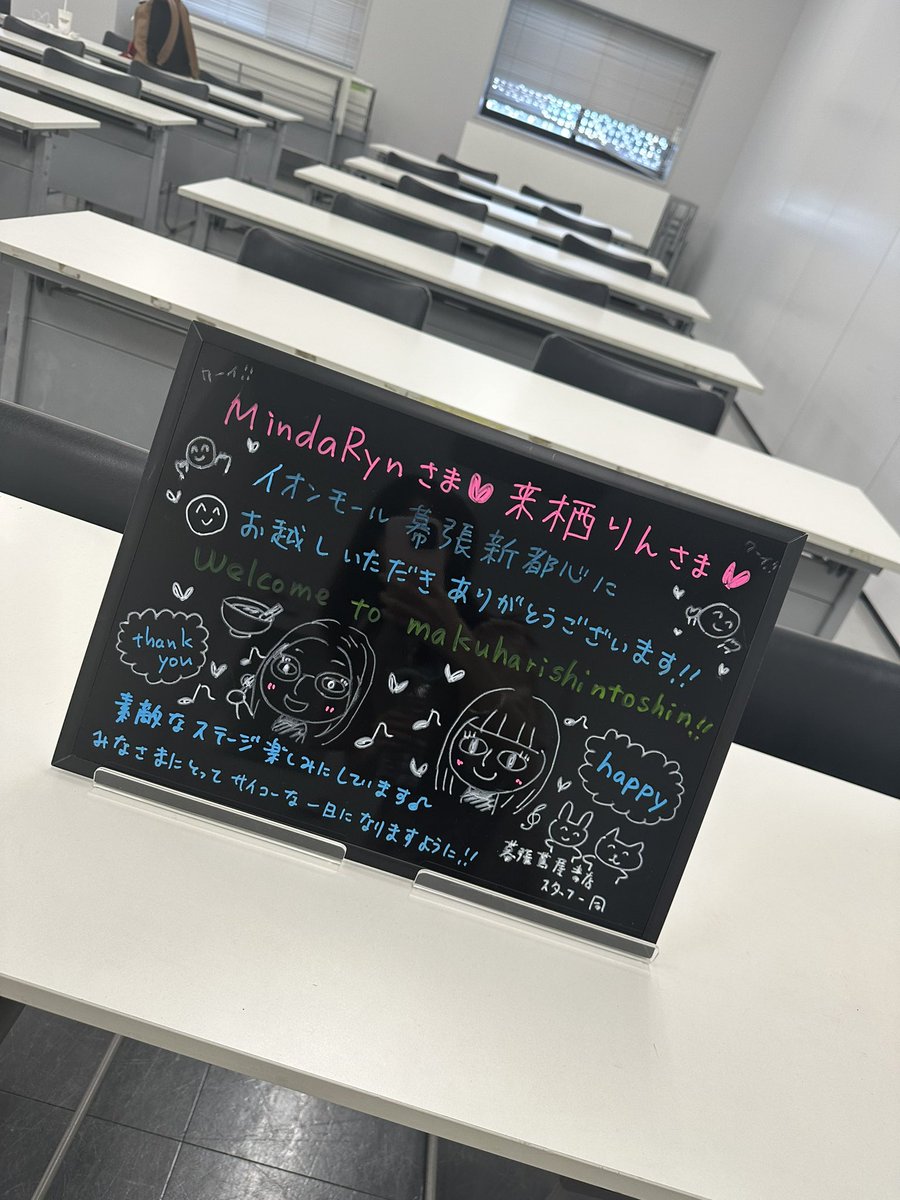 ワーイ!!
MindaRynさま 来栖りんさま
ワーイ!!
イオンモール幕張新都心に
お越しいただきありがとうございます!!
Welcome to makuharishintoshin!!
thank you
happy
素敵なステージ楽しみにしています♪
みなさまにとってサイコーな一日になりますように!!
幕張蔦屋書店
スタッフ一同